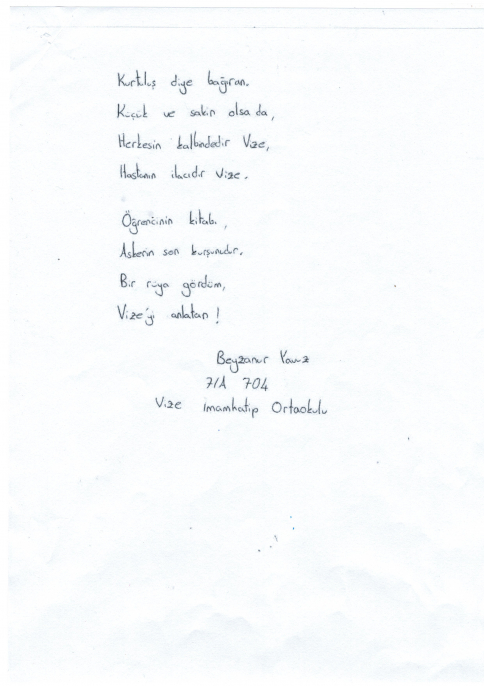 Kurtuluş diye bağıran.
Küçük ve sakin olsa da,
Herkesin kalbindedir Vize,
Hastanın ilacıdır Vize.
Öğrencinin kitabı.,
Askerin son kurşunudur.
Bir rüya gördüm,
Vize'yi anlatan!
Beyzanur Yavuz
7/A 704
Vize imamhatip Ortaokulu